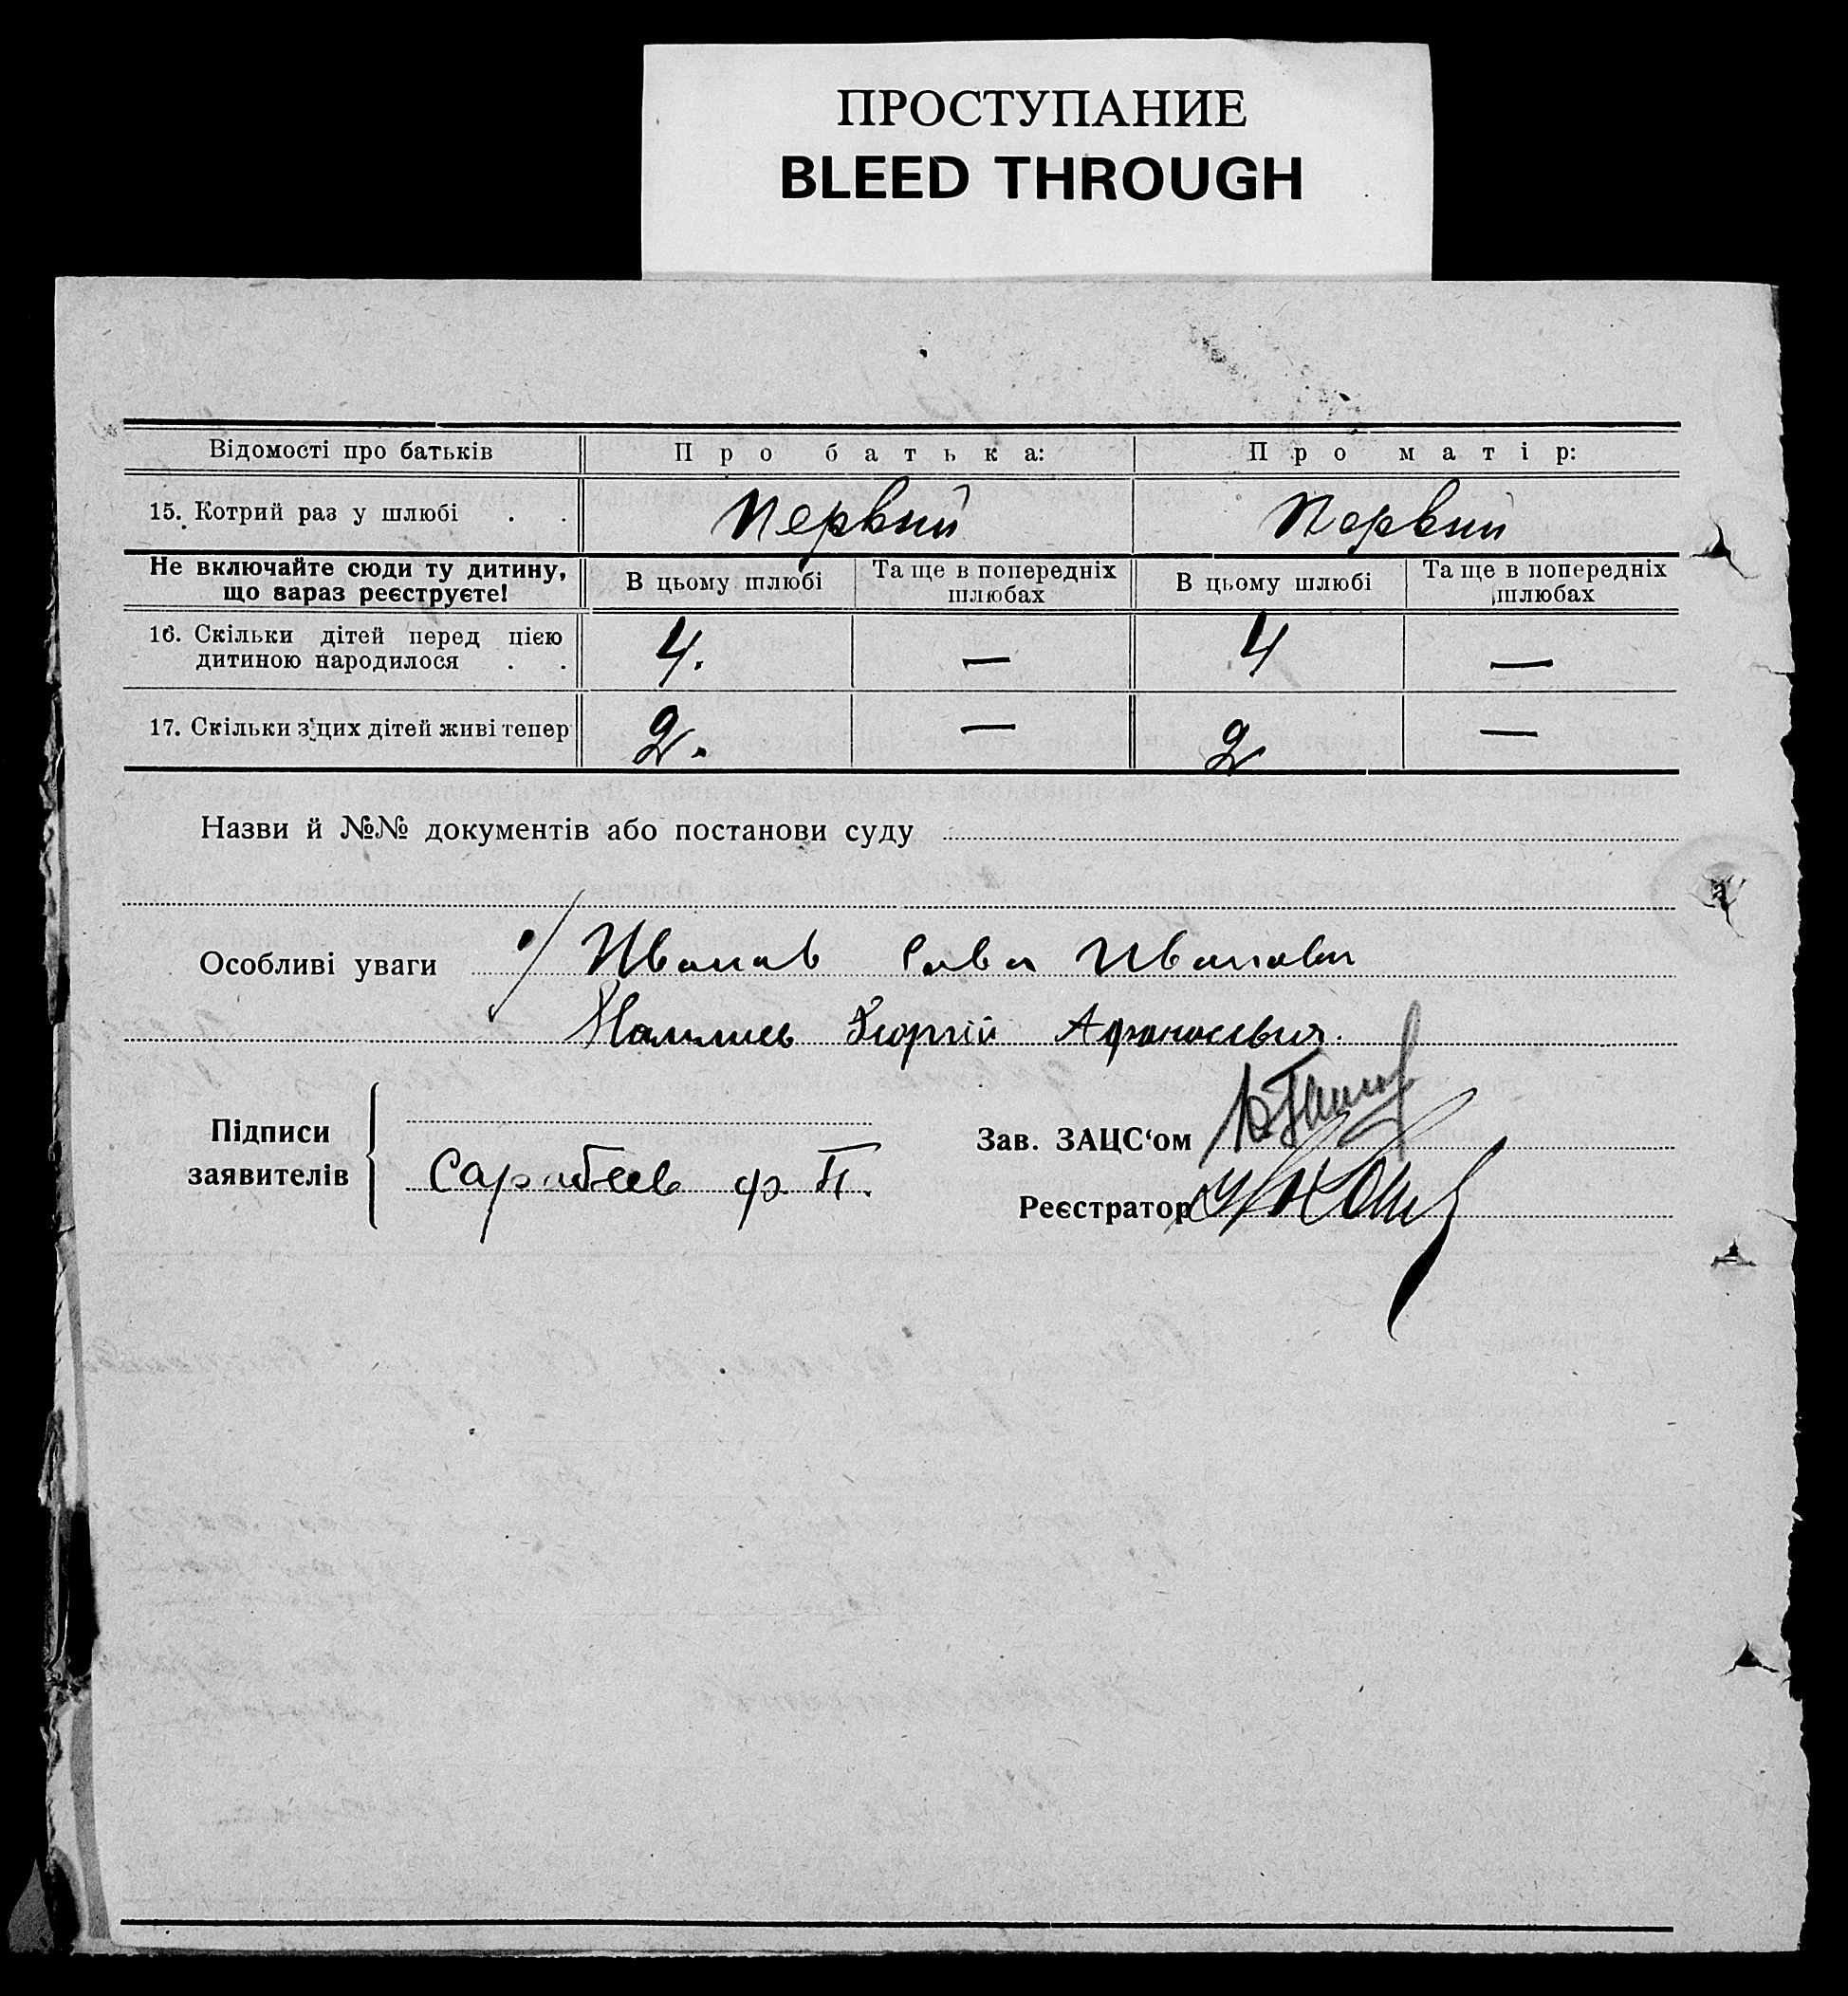 ПРОСТУПАНИЕ
BLEED THROUGH
Відомості про батьків Про батька: Про матір:
15. Котрий раз у шлюбі . . Первий Первий
Не включайте сюди ту дитину, що зараз реєструєте! В цьому шлюбі Та ще в попередніх шлюбах В цьому шлюбі Та ще в попередніх шлюбах
16. Скільки дітей перед цією
дитиною народилося . . 4. — 4 —
17. Скільки з цих дітей живі тепер 2. — 2 —
Назви й №№ документів або постанови суду
Особливі уваги Иванов Сава Иванович
Георгій Афанасьевич.
Підписи
заявителів
Сарабеев Ф. П.
Зав. ЗАЦС‘ом
Реєстратор